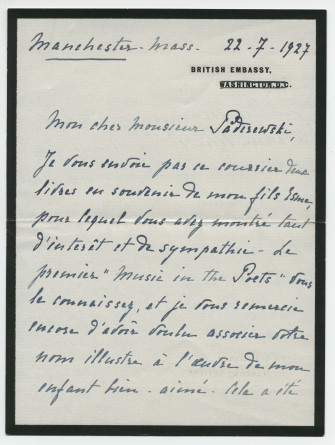 Manchester - Mass. 22 - 7 - 1927
BRITISH EMBASSY,
WASHINGTON, D.C.
Mon cher Monsieur Paderewski,
Je vous envoie par ce courrier deux
livres en souvenir de mon fils Esme,
pour lequel vous avez montré tant
d'intérêt et de sympathie - Le
premier "Music in the Poets" vous
le connaissez, et je vous remercie
encore d'avoir voulu associer votre
nom illustre à l'œuvre de mon
enfant bien - aimé. Cela a été